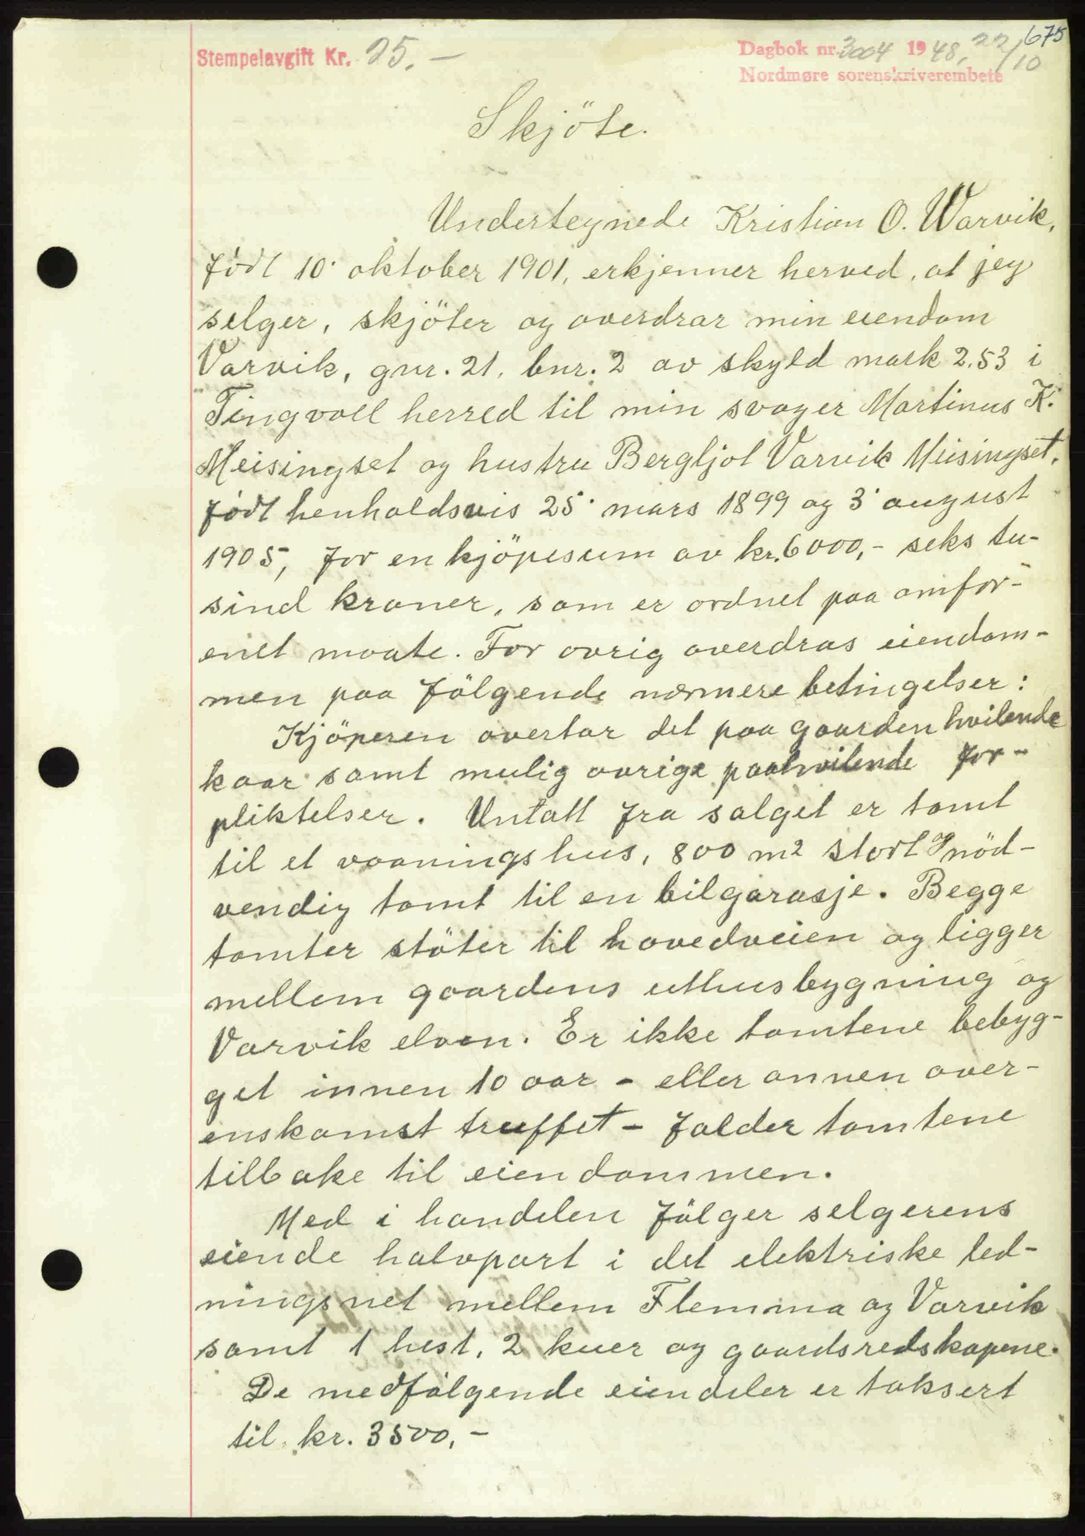 675
Stempelavgift Kr. 25.-
Dagbok nr. 3004 1948, 22/10
Nordmøre sorenskriverembete
Skjöte.
Undertegnede Kristian O. Warvik,
født 10. oktober 1901, erkjenner herved, at jeg
selger, skjöter og overdrar min eiendom
Varvik, gnr. 21, bnr. 2 av skyld mark 2.53 i
Tingvoll herred til min svoger Martinus K.
Meisingset og hustru Bergljot Varvik Meisingset,
født henholdsvis 25. mars 1899 og 3. august
1905, for en kjöpesum av kr. 6000,- seks tu-
sind kroner, som er ordnet paa omfor-
enet maate. For övrig overdras eiendom-
men paa fölgende nærmere betingelser:
Kjöperen overtar det paa gaarden hvilende
kaar samt mulig övrige paahvilende for-
pliktelser. Untatt fra salget er tomt
til et vaaningshus, 800 m2 stort & nöd-
vendig tomt til en bilgarasje. Begge
tomter stöter til hovedveien og ligger
mellem gaardens uthusbygning og
Varvik elven. Er ikke tomtene bebyg-
get innen 10 aar - eller annen over-
enskomst truffet - falder tomtene
tilbake til eiendommen.
Med i handelen fölger selgerens
eiende halvpart i det elektriske led-
ningsnet mellem Flemma og Varvik
samt 1 hest, 2 kuer og gaardsredskapene.
De medfölgende eiendeler er taksert
til kr. 3500,-